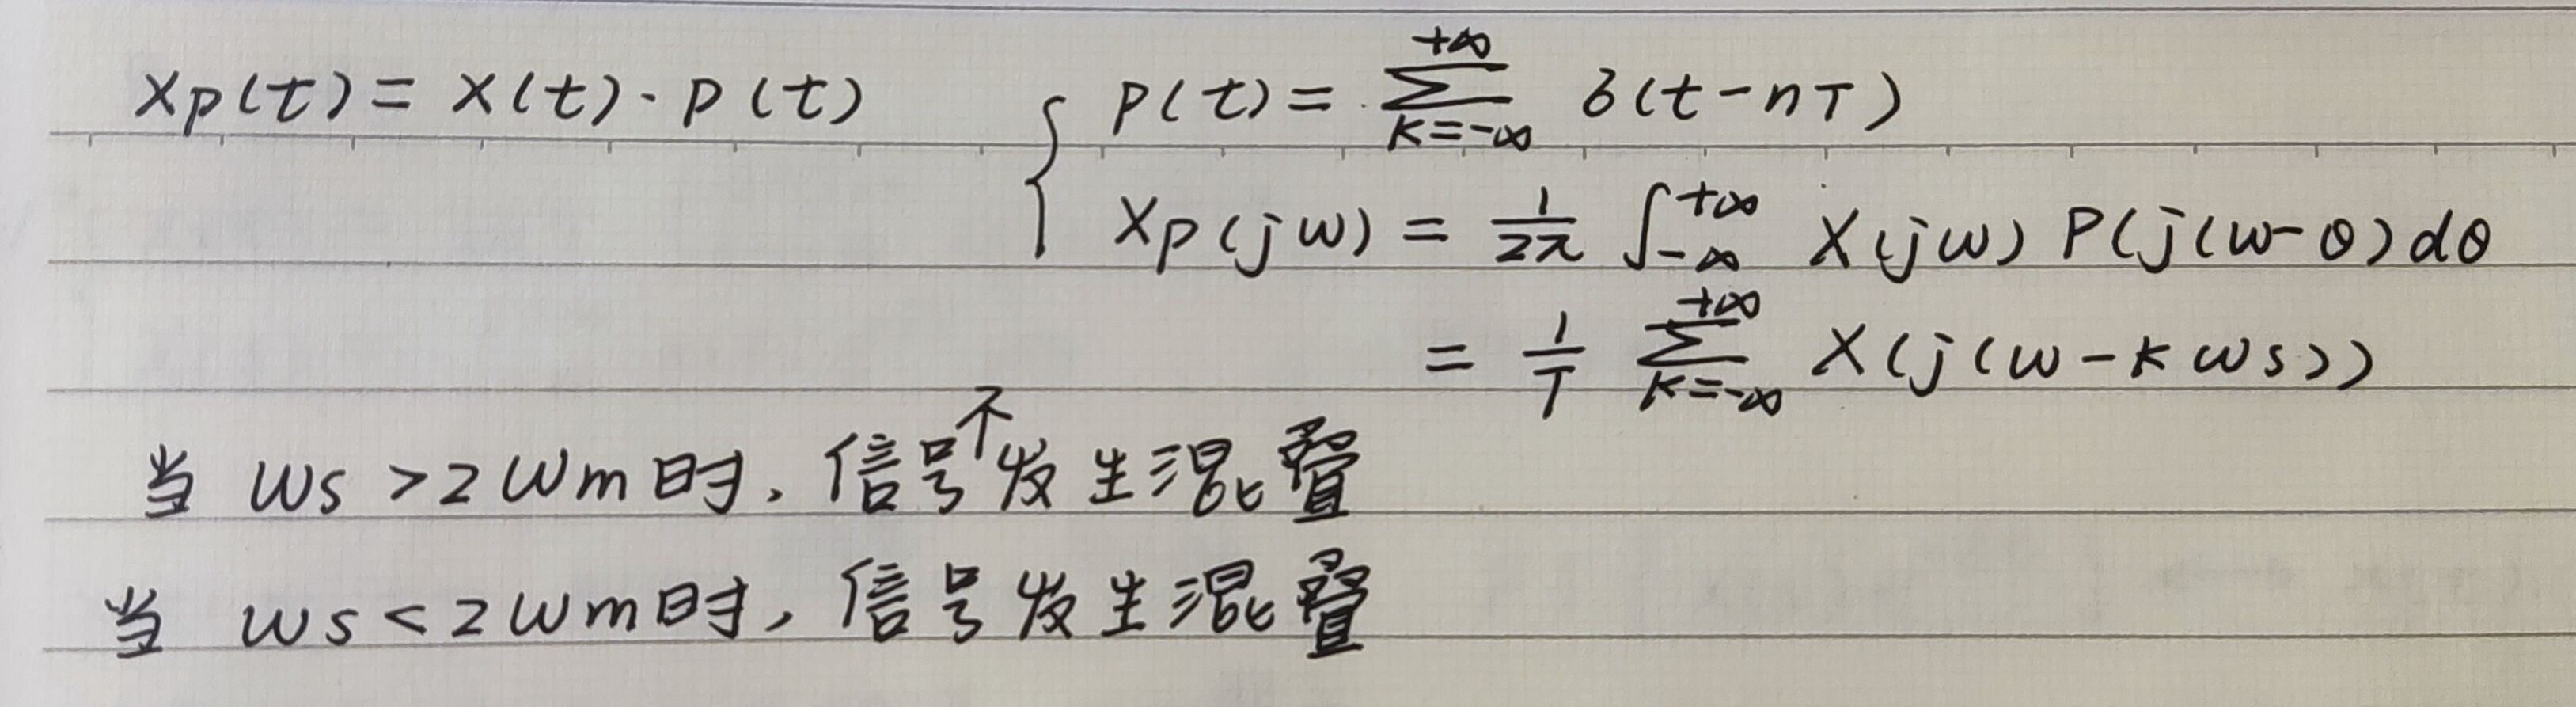 Xp(t) = X(t)·p(t) { p(t) = ∑_{K=-∞}^{+∞} δ(t-nT)
Xp(jω) = 1/2π ∫_{-∞}^{+∞} X(jω) P(j(ω-θ)dθ
= 1/T ∑_{K=-∞}^{+∞} X(j(ω-Kωs))
当 ωs>2ωm时、信号不发生混叠
当 ωs<2ωm时，信号发生混叠